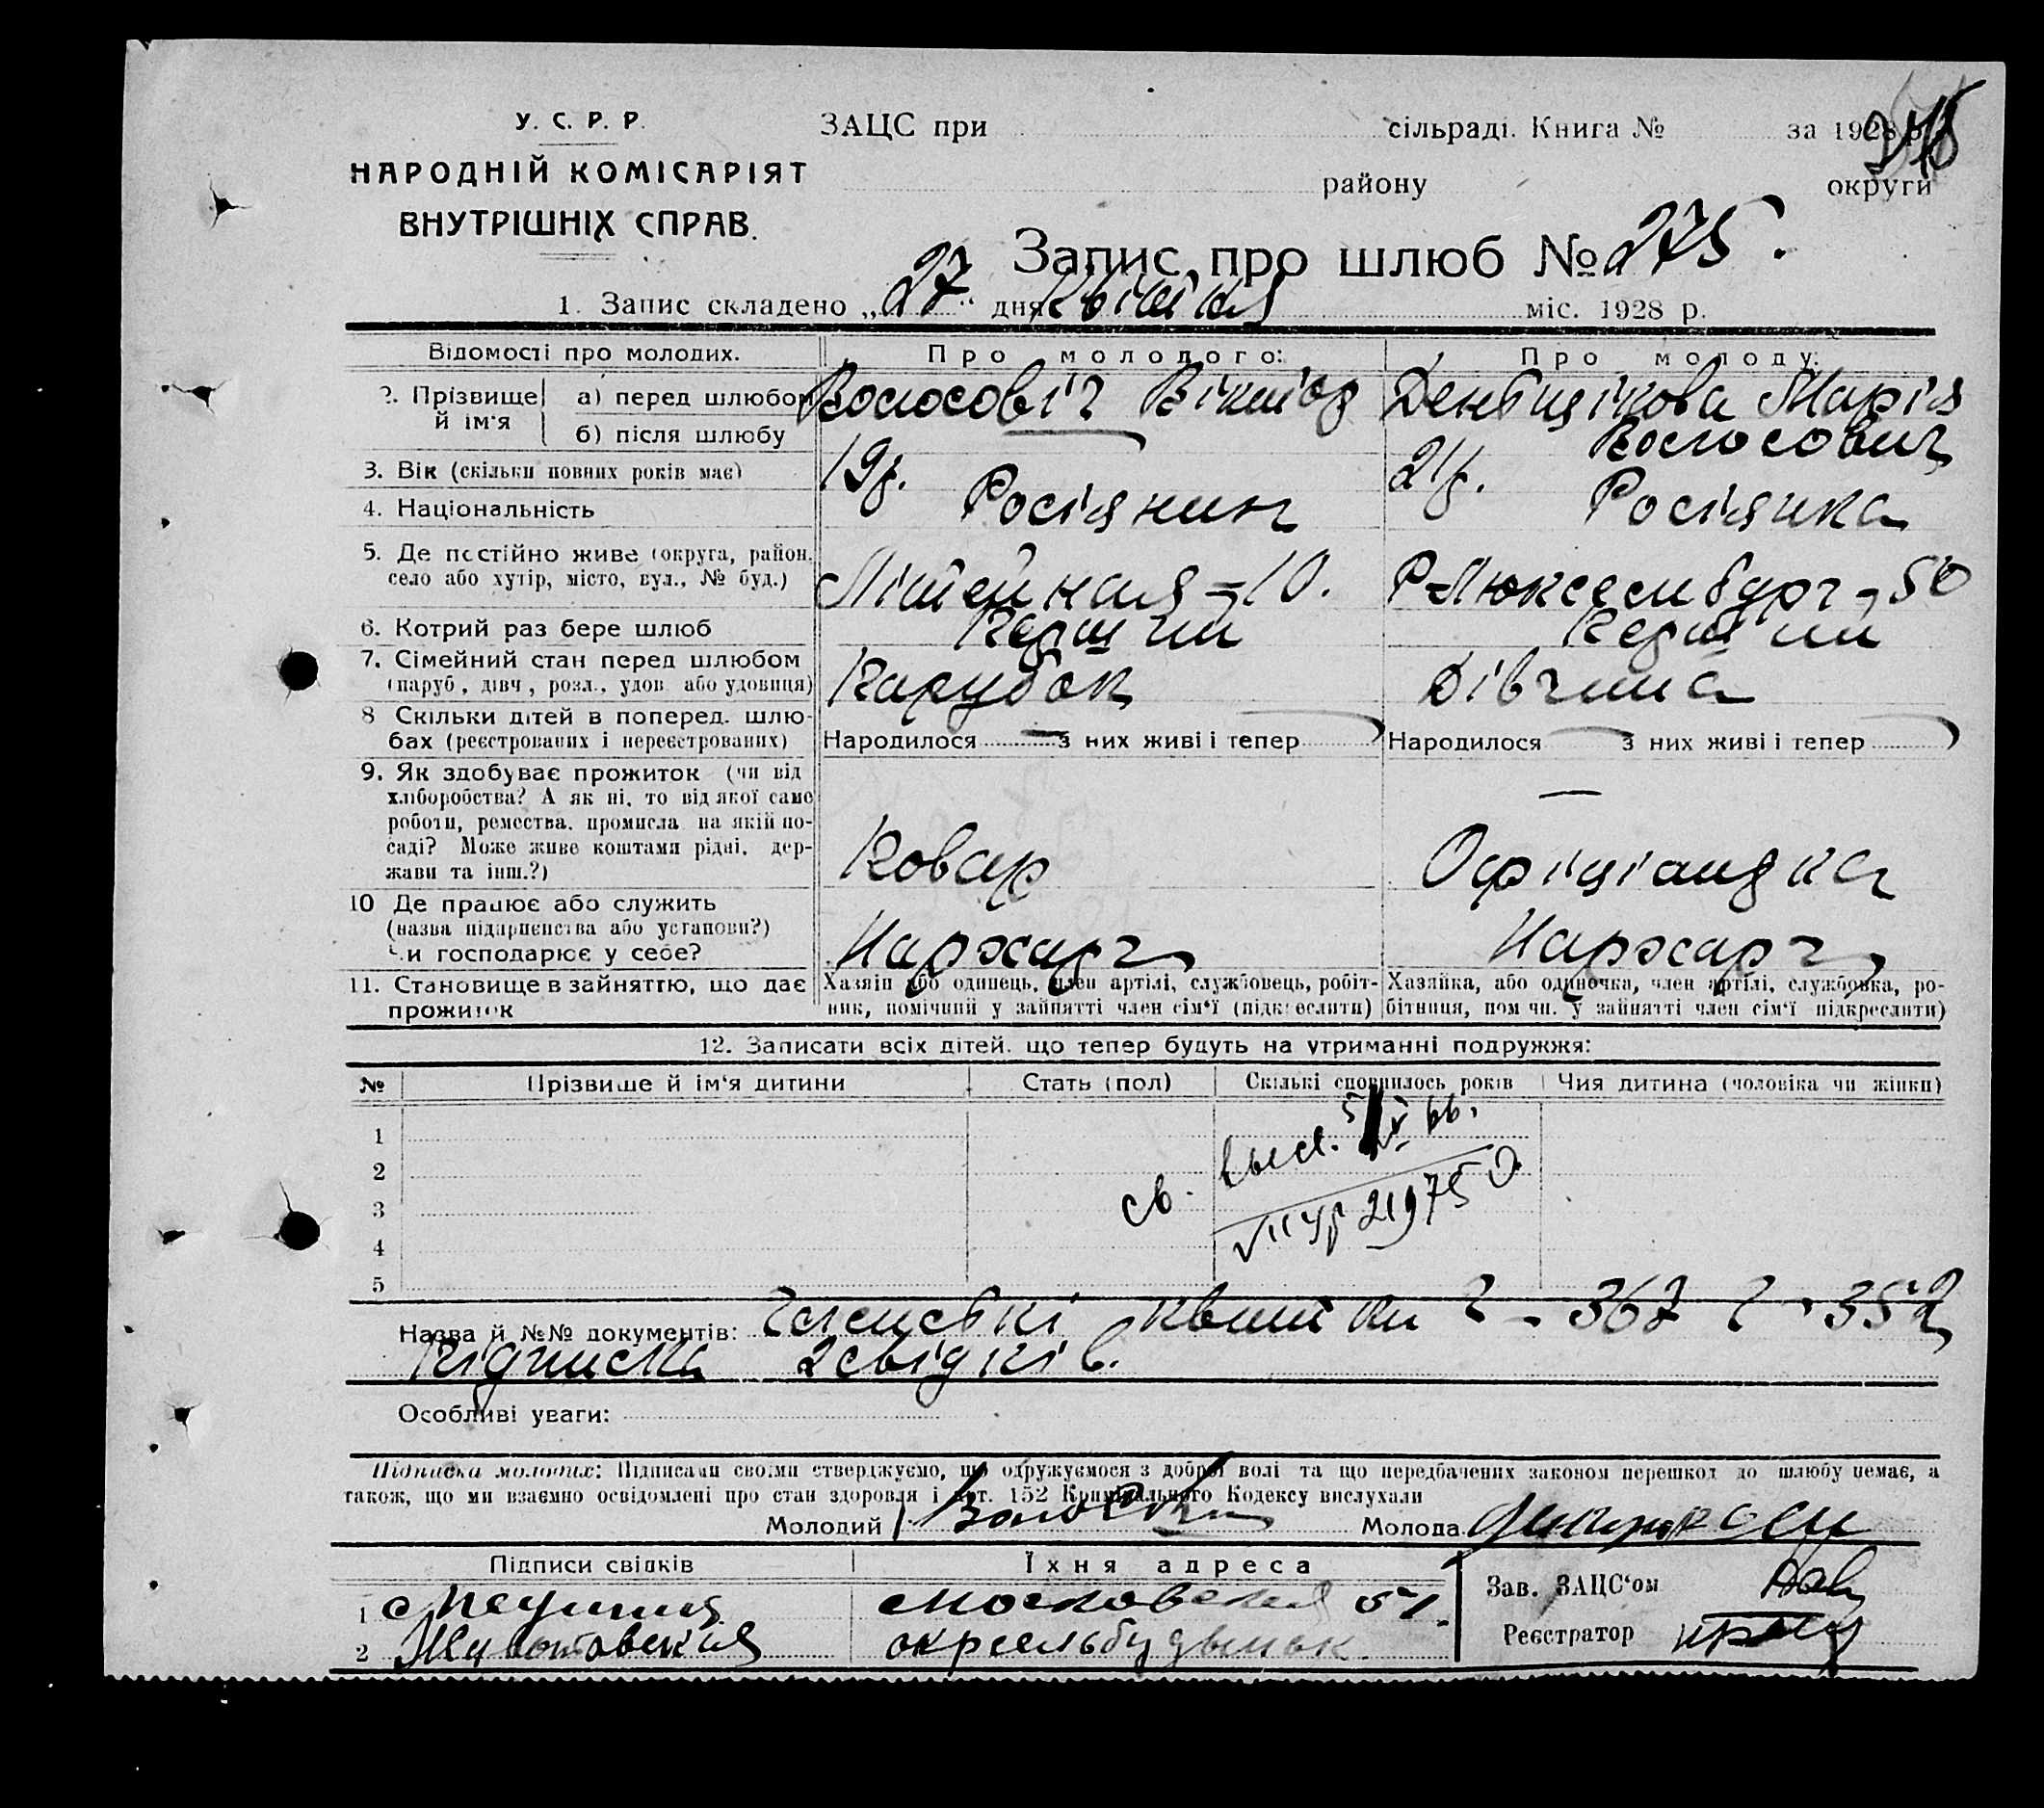 У. С. Р. Р.
НАРОДНІЙ КОМІСАРІЯТ
ВНУТРІШНІХ СПРАВ.
ЗАЦС при сільраді. Книга № за 1928
району округи
Запис про шлюб № 275.
1. Запис складено „27“ дня Квітня міс. 1928 р.
Відомості про молодих. Про молодого: Про молоду:
2. Прізвище й ім'я а) перед шлюбом Волосовіч Віктор Марія
б) після шлюбу Волосович
3. Вік (скільки повних років має) 19р. 21р.
4. Національність Росіянин Росіянка
5. Де постійно живе (округа, район, село або хутір, місто, вул., № буд.) Літейная - 10. Р-Люксембург - 50
6. Котрий раз бере шлюб Перший Перший
7. Сімейний стан перед шлюбом (паруб, дівч, розл., удов або удовиця) Парубок Дівчина
8 Скільки дітей в поперед. шлюбах (реєстрованих і нереєстрованих) Народилося — з них живі і тепер Народилося — з них живі і тепер
9. Як здобуває прожиток (чи від хліборобства? А як ні, то від якої само роботи, ремества, промисла на якій посаді? Може живе коштами рідні, держави та інш.?) Ковар Офіціантка
10 Де працює або служить (назва підприємства або установи?) Чи господарює у себе? Нархарч Нархарч
11. Становище в зайняттю, що дає прожиток Хазяін або одинець, член артілі, службовець, робітник, помічний у зайнятті член сім'ї (підкреслити) Хазяйка, або одиночка, член артілі, службовка, робітниця, пом чн. у зайнятті член сім'ї підкреслити)
12. Записати всіх дітей, що тепер будуть на утриманні подружжя:
№ Прізвище й ім'я дитини Стать (пол) Скількі сповнилось років Чия дитина (чоловіка чи жінки)
1
2
3
4
5
св. 219750
Назва й №№ документів: Членські квитки - 367 352
Підписка 2 свідків.
Особливі уваги:
Підписка молодих: Підписами своїми стверджуємо, що одружуємося з доброї волі та що передбачених законом перешкод до шлюбу немає, а
також, що ми взаємно освідомлені про стан здоровля і арт. 152 Кримінального Кодексу вислухали
Молодий Молода
Підписи свідків Їхня адреса
1 Московская 51.
2
Зав. ЗАЦС'ом
Реєстратор